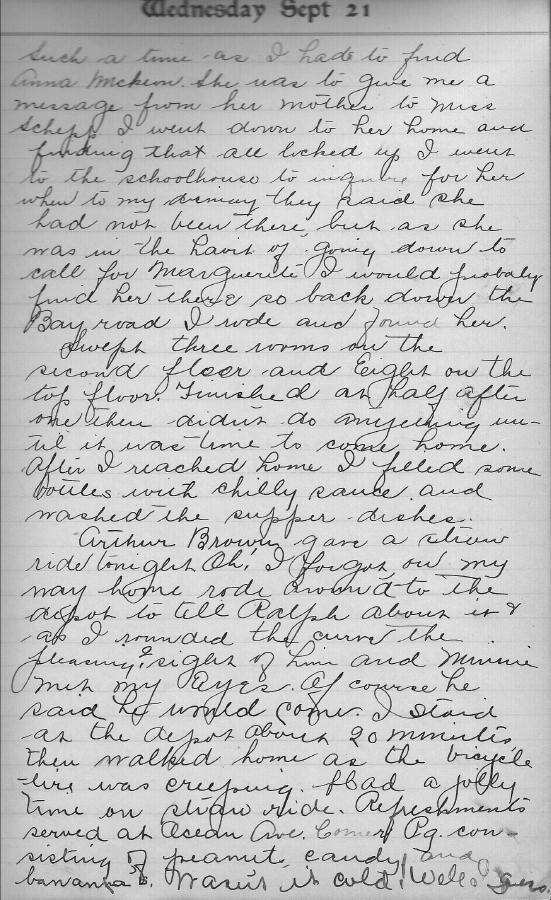 Wednesday Sept 21
Such a time as I had to find
Anna McKeon. She was to give me a
message from her mother to Miss
Schepp. I went down to her home and
finding that all locked up I went
to the schoolhouse to inquire for her
when to my dismay they said she
had not been there, but as she
was in the havit of going down to
call for Marguerite I would probaly
find her there so back down the
Bay road I rode and found her.
Swept three rooms on the
second floor and Eight on the
top floor. Finished at half after
one then didn't do anything un-
til it was time to come home.
After I reached home I filled some
bottles with chilly sauce and
washed the supper dishes.
Arthur Brown gave a straw
ride tonight Oh! I forgot on my
way home rode around to the
depot to tell Ralph about it &
as I rounded the curve the
pleasing? sight of him and Minnie
met my Eyes. Of course he
said he would come. I staid
at the depot about 20 minutes
then walked home as the bicycle
tire was creeping. Had a jolly
time on straw ride. Refreshments
served at Ocean Ave. Corner Pg. con-
sisting of peanuts, candy and
bananas. Wasn't it cold! Well I guess.